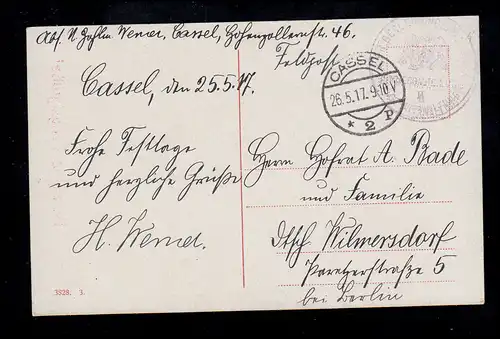 Abs. N. Zahlm. Werner, Cassel, Hohenzollernstr. 46.
Feldpost
CASSEL
26.5.17.9-10V
* 2 P
Cassel, den 25.5.17.
Frohe Festtage
und herzliche Grüße
H. Werner.
Herrn Hofrat A. Bade
und Familie
Dtsch. Wilmersdorf
Paretzerstraße 5
bei Berlin
3528. 3.